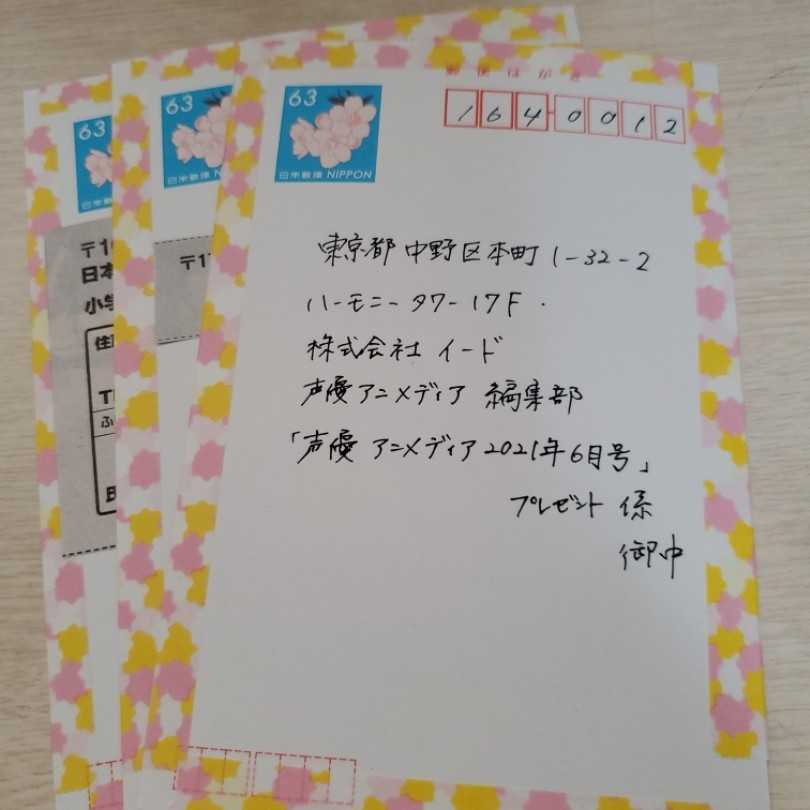 63
日本郵便 NIPPON
郵便はがき
1640012
東京都中野区本町1-32-2
ハーモニータワー17F
株式会社イード
声優アニメディア 編集部
「声優アニメディア2021年6月号」
プレゼント係
御中
63
日本郵便 NIPPON
〒17
63
日本
〒10
日本
小学
住